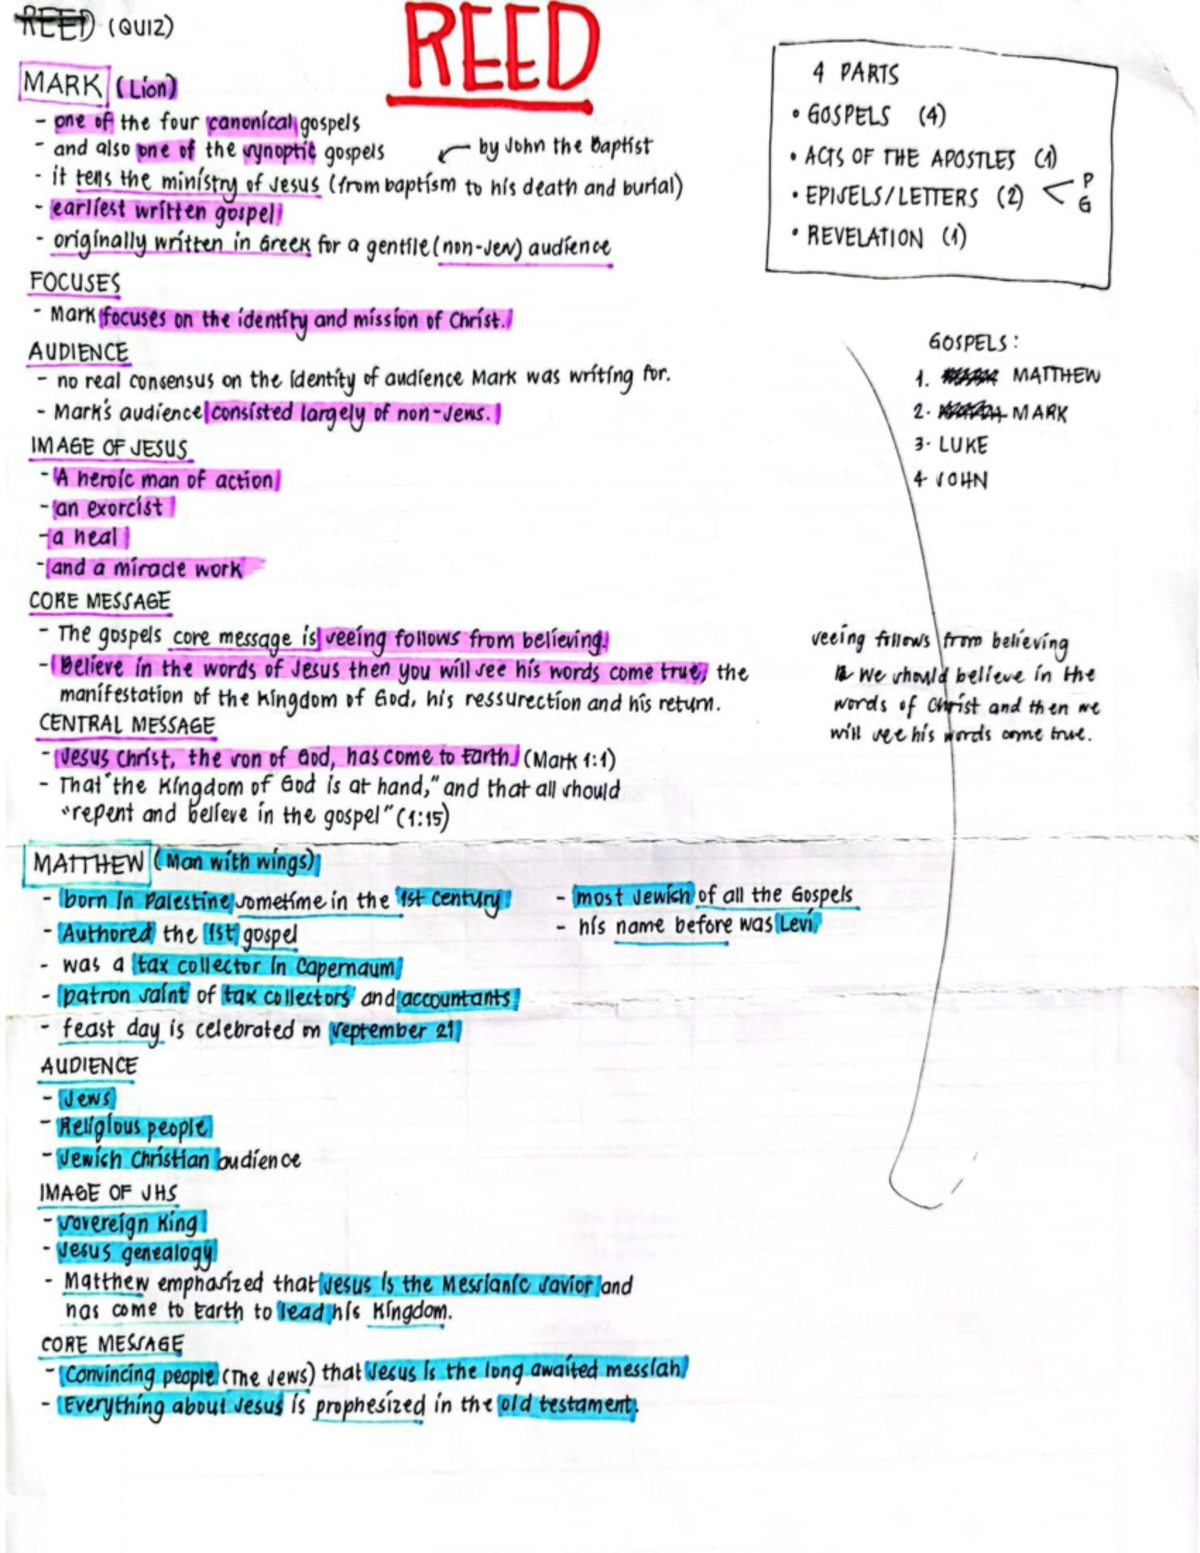 REED (QUIZ)
REED
MARK (Lion)
- one of the four canonical gospels
- and also one of the synoptic gospels
by John the Baptist
- it tells the ministry of Jesus (from baptism to his death and burial)
- earliest written gospel
- originally written in Greek for a gentile (non-Jew) audience
FOCUSES
- Mark focuses on the identity and mission of Christ.
AUDIENCE
- no real consensus on the identity of audience Mark was writing for.
- Mark's audience consisted largely of non-Jews.
IMAGE OF JESUS
- A heroic man of action
- an exorcist
- a heal
- and a miracle work
CORE MESSAGE
- The gospels core message is seeing follows from believing.
- Believe in the words of Jesus then you will see his words come true, the
manifestation of the Kingdom of God, his ressurection and his return.
CENTRAL MESSAGE
- Jesus Christ, the son of God, has come to Earth. (Mark 1:1)
- That "the Kingdom of God is at hand," and that all should
"repent and believe in the gospel" (1:15)
4 PARTS
• GOSPELS (4)
• ACTS OF THE APOSTLES (1)
• EPISELS/LETTERS (2) < P
G
• REVELATION (1)
GOSPELS:
1. MATTHEW
2. MARK
3. LUKE
4. JOHN
seeing follows from believing
We should believe in the
words of Christ and then we
will see his words come true.
MATTHEW (Man with wings)
- born in Palestine sometime in the 1st century
- Authored the 1st gospel
- was a tax collector in Capernaum
- patron saint of tax collectors and accountants
- feast day is celebrated on september 21
- most Jewish of all the Gospels
- his name before was Levi
AUDIENCE
- Jews
- Religious people
- Jewish Christian audience
IMAGE OF JHS
- sovereign King
- Jesus genealogy
- Matthew emphasized that Jesus is the Messianic Savior and
has come to Earth to lead his Kingdom.
CORE MESSAGE
- Convincing people (The Jews) that Jesus is the long awaited messiah
- Everything about Jesus is prophesized in the old testament.